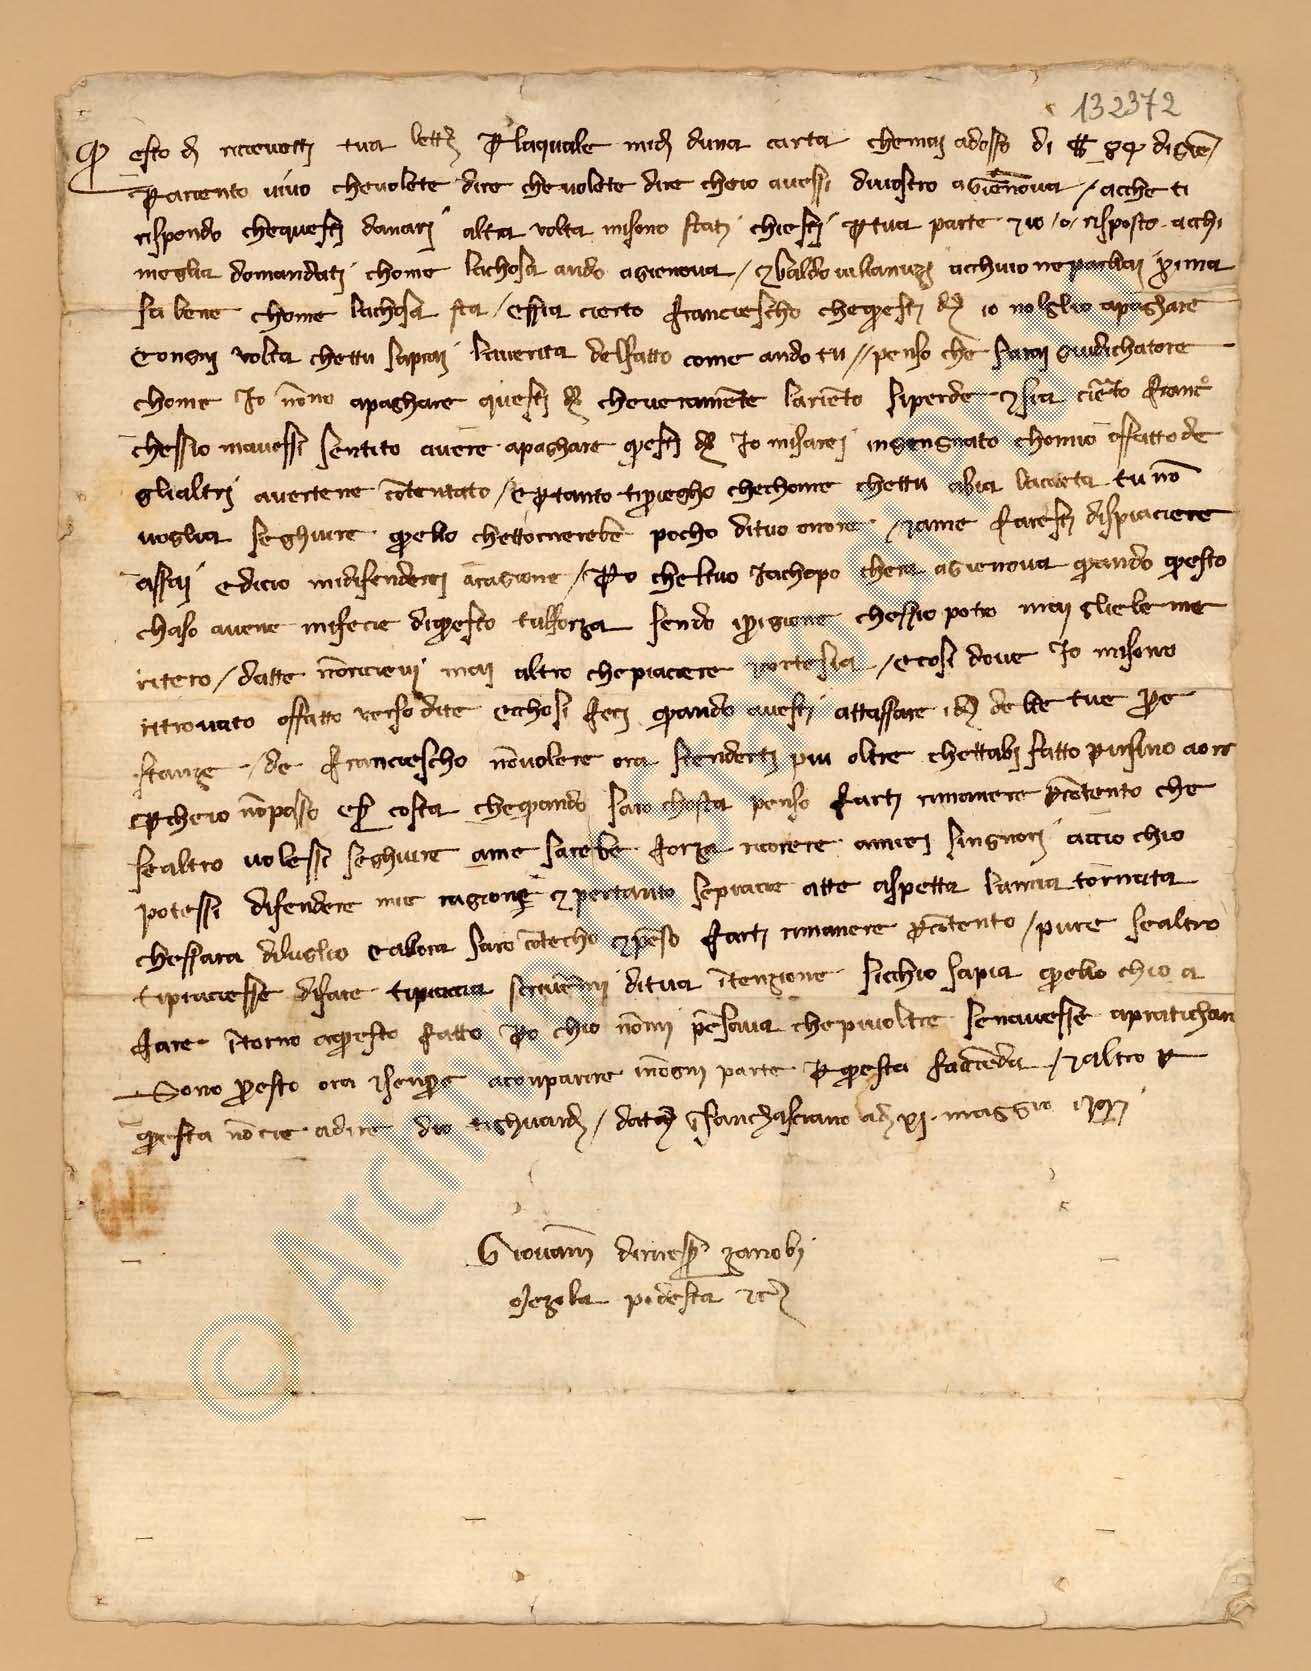 132372
Questo dì ricievetti tua lettera per laquale mi di duna carta chemai adosso di
per ariento vivo chevolete dire chevolete dire cheio avessi divostro agienova / acche ti
rispondo chequesti danari altra volta misono stati chiesti per tua parte e io o risposto acchi
megla domandati chome lachosa ando agienova / e Ubaldo acchui ne parlai prima
sa bene chome lachosa sta / e ssia cierto Franciescho chequesti d. io no gl o apaghare
e ongni volta chettu sapiai laverita delfatto come ando tu // penso che sarai giudichatore
chome Io nono apaghare questi d. cheveramente lariento siperde e sia cierto Franc°
chessio mavessi sentito avere apaghare questi d. Io misarei ingengnato chomio offatto de
glialtri avertene contentato / e pertanto tipriegho chechome chettu abia lacarta tu non
voglia seghuire quello chettornerebe pocho dituo onore / e ame faresti dispiaciere
assai e dicio midifenderei aragione / Pero cheltuo Jachopo chera agienova quando questo
chaso avene mifecie diquesto tal forza sendo iprigione chessio potro mai glele me
ritero / datte nonricievi mai altro chepiacere cortesia / e cosi dove Io misono
ritrovato offatto verso dite e cchosi feci quando avesti attassare delle tue pre
stanze / de Franciescho nonvolere ora stenderti piu oltre chettabi fatto
perchio nonposso esser costa chequando saro chosta penso farti rimanere percontento che
sealtro volessi seghuire ame sarebe forza ricorere amiei singnori accio chio
potessi difendere mie ragione e pertanto sepiacie atte aspetta lamia tornata
chessara diluglio e alora saro contecho e penso farti rimanere percontento / pure sealtro
tipiaciesse difare tipiaccia scrivermi ditua intenzione sicchio sapia quello chio a
fare intorno aquesto fatto Pero chio nonmi pensava chepiuoltre senavesse apratichare
Sono presto ora e senpre aconparire inongni parte per questa facienda / e altro per
questa noncie adire dio tighuardi / data insanchasciano adi xi maggio
Giovanni di
podesta etc